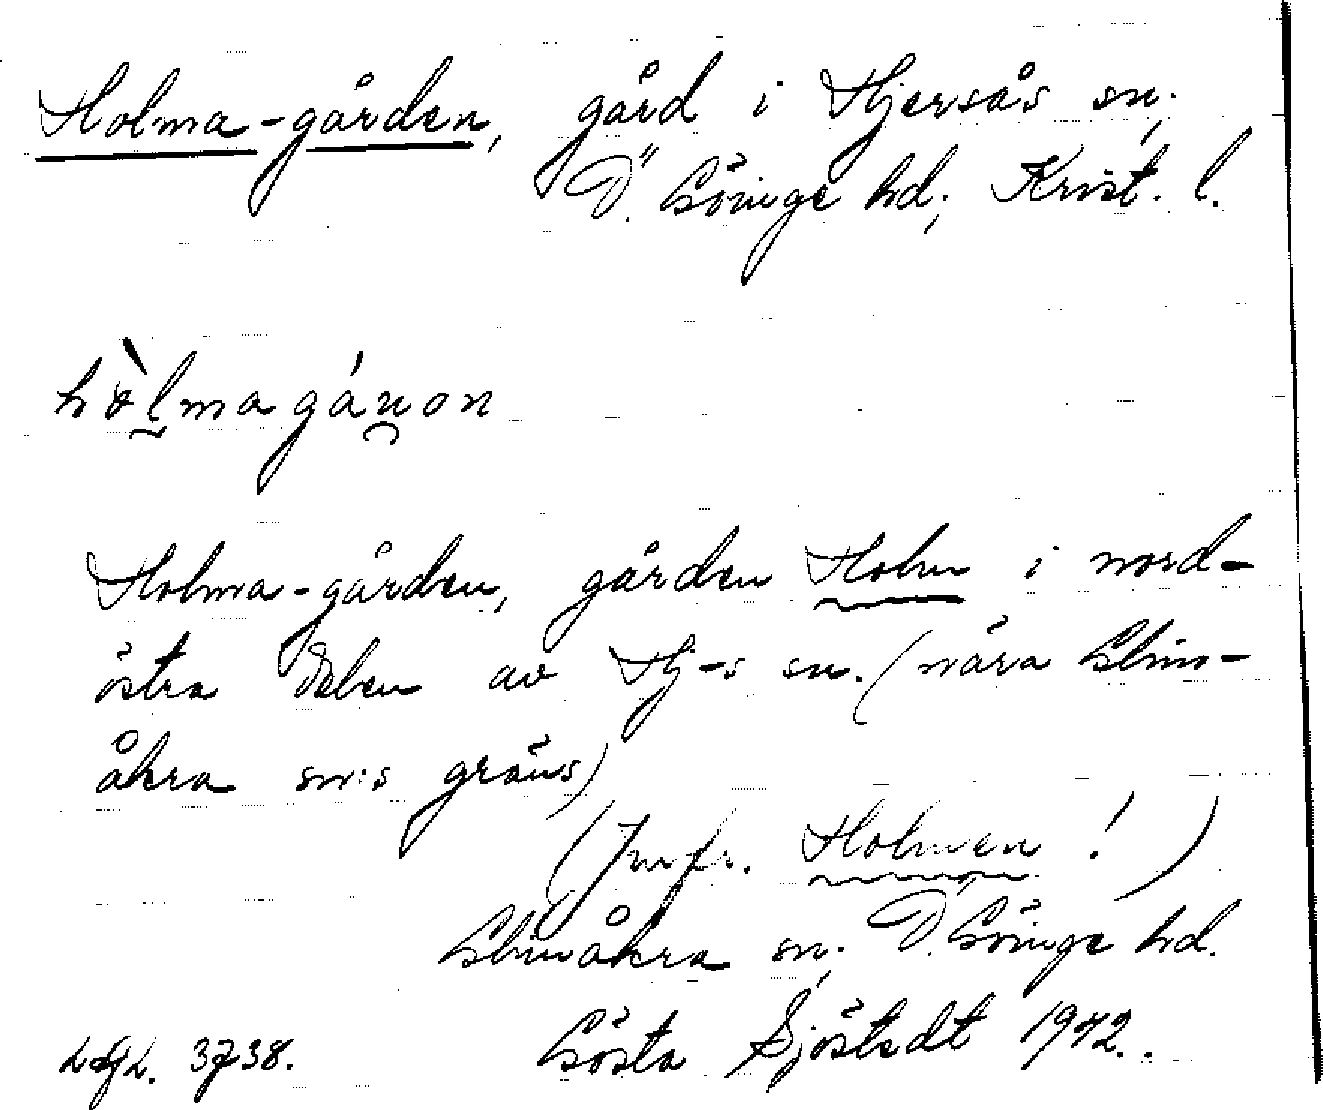 Holma-gården, gård i Hjersås sn,
Ö. Göinge hd, Krist. l.
hòlmagánon
Holma-gården, gården Holm i nord-
östra delen av Hj-s sn. (nära Glim-
åkra sn:s gräns)
(Jmfr. Holmen!)
Glimåkra sn, Ö. Göinge hd.
Gösta Sjöstedt 1942.
3738.